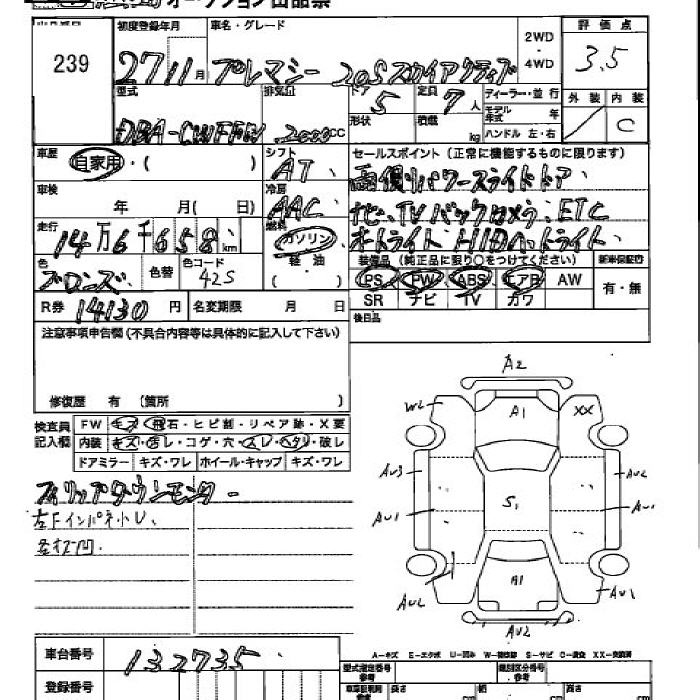 オークション出品票
239
初度登録年月 車名・グレード 2WD・4WD 評価点
27 11月 プレマシー 20Sスカイアクティブ 3.5
型式 排気量 ドア 5 定員 7人 ディーラー・並行 外装 内装
DBA-CWFFW 2000cc 形状 積載 kg モデル年式 年 C
ハンドル 左・右
車歴 自家用・( ) シフト AT セールスポイント(正常に機能するものに限ります)
両側パワースライドドア、
車検 年 月( 日) 冷房 AAC
ナビ、TV バックカメラ、ETC
走行 14万6千658km 燃料 ガソリン
オートライト HIDヘッドライト
色 ブロンズ 色替 色コード 42S 軽油 ( )
装備品(純正品に限り○をつけてください) 新車保証書
PS PW ABS エアB AW 有・無
SR ナビ TV カワ
R券 14130円 名変期限 月 日
後日品
注意事項申告欄(不具合内容等は具体的に記入して下さい)
修復歴 有 (箇所 )
検査員記入欄 FW キズ・飛石・ヒビ割・リペア跡・X要
内装 キズ・汚レ・コゲ・穴・スレ・ヘタリ・破レ
ドアミラー キズ・ワレ ホイール・キャップ キズ・ワレ
フィリップダウンモニター
左Fインパネ小U、
A2
W2 A1 XX
AU3 AU2
AU1 S1 AU1
AU2 A1 AU1
AU2
A-キズ E-エクボ U-凹み W-補修跡 S-サビ C-腐食 XX-交換済
車台番号 132735
登録番号
型式指定番号 参考 類別区分番号 参考
車証説明用 参考 長さ cm 幅 cm 高さ cm